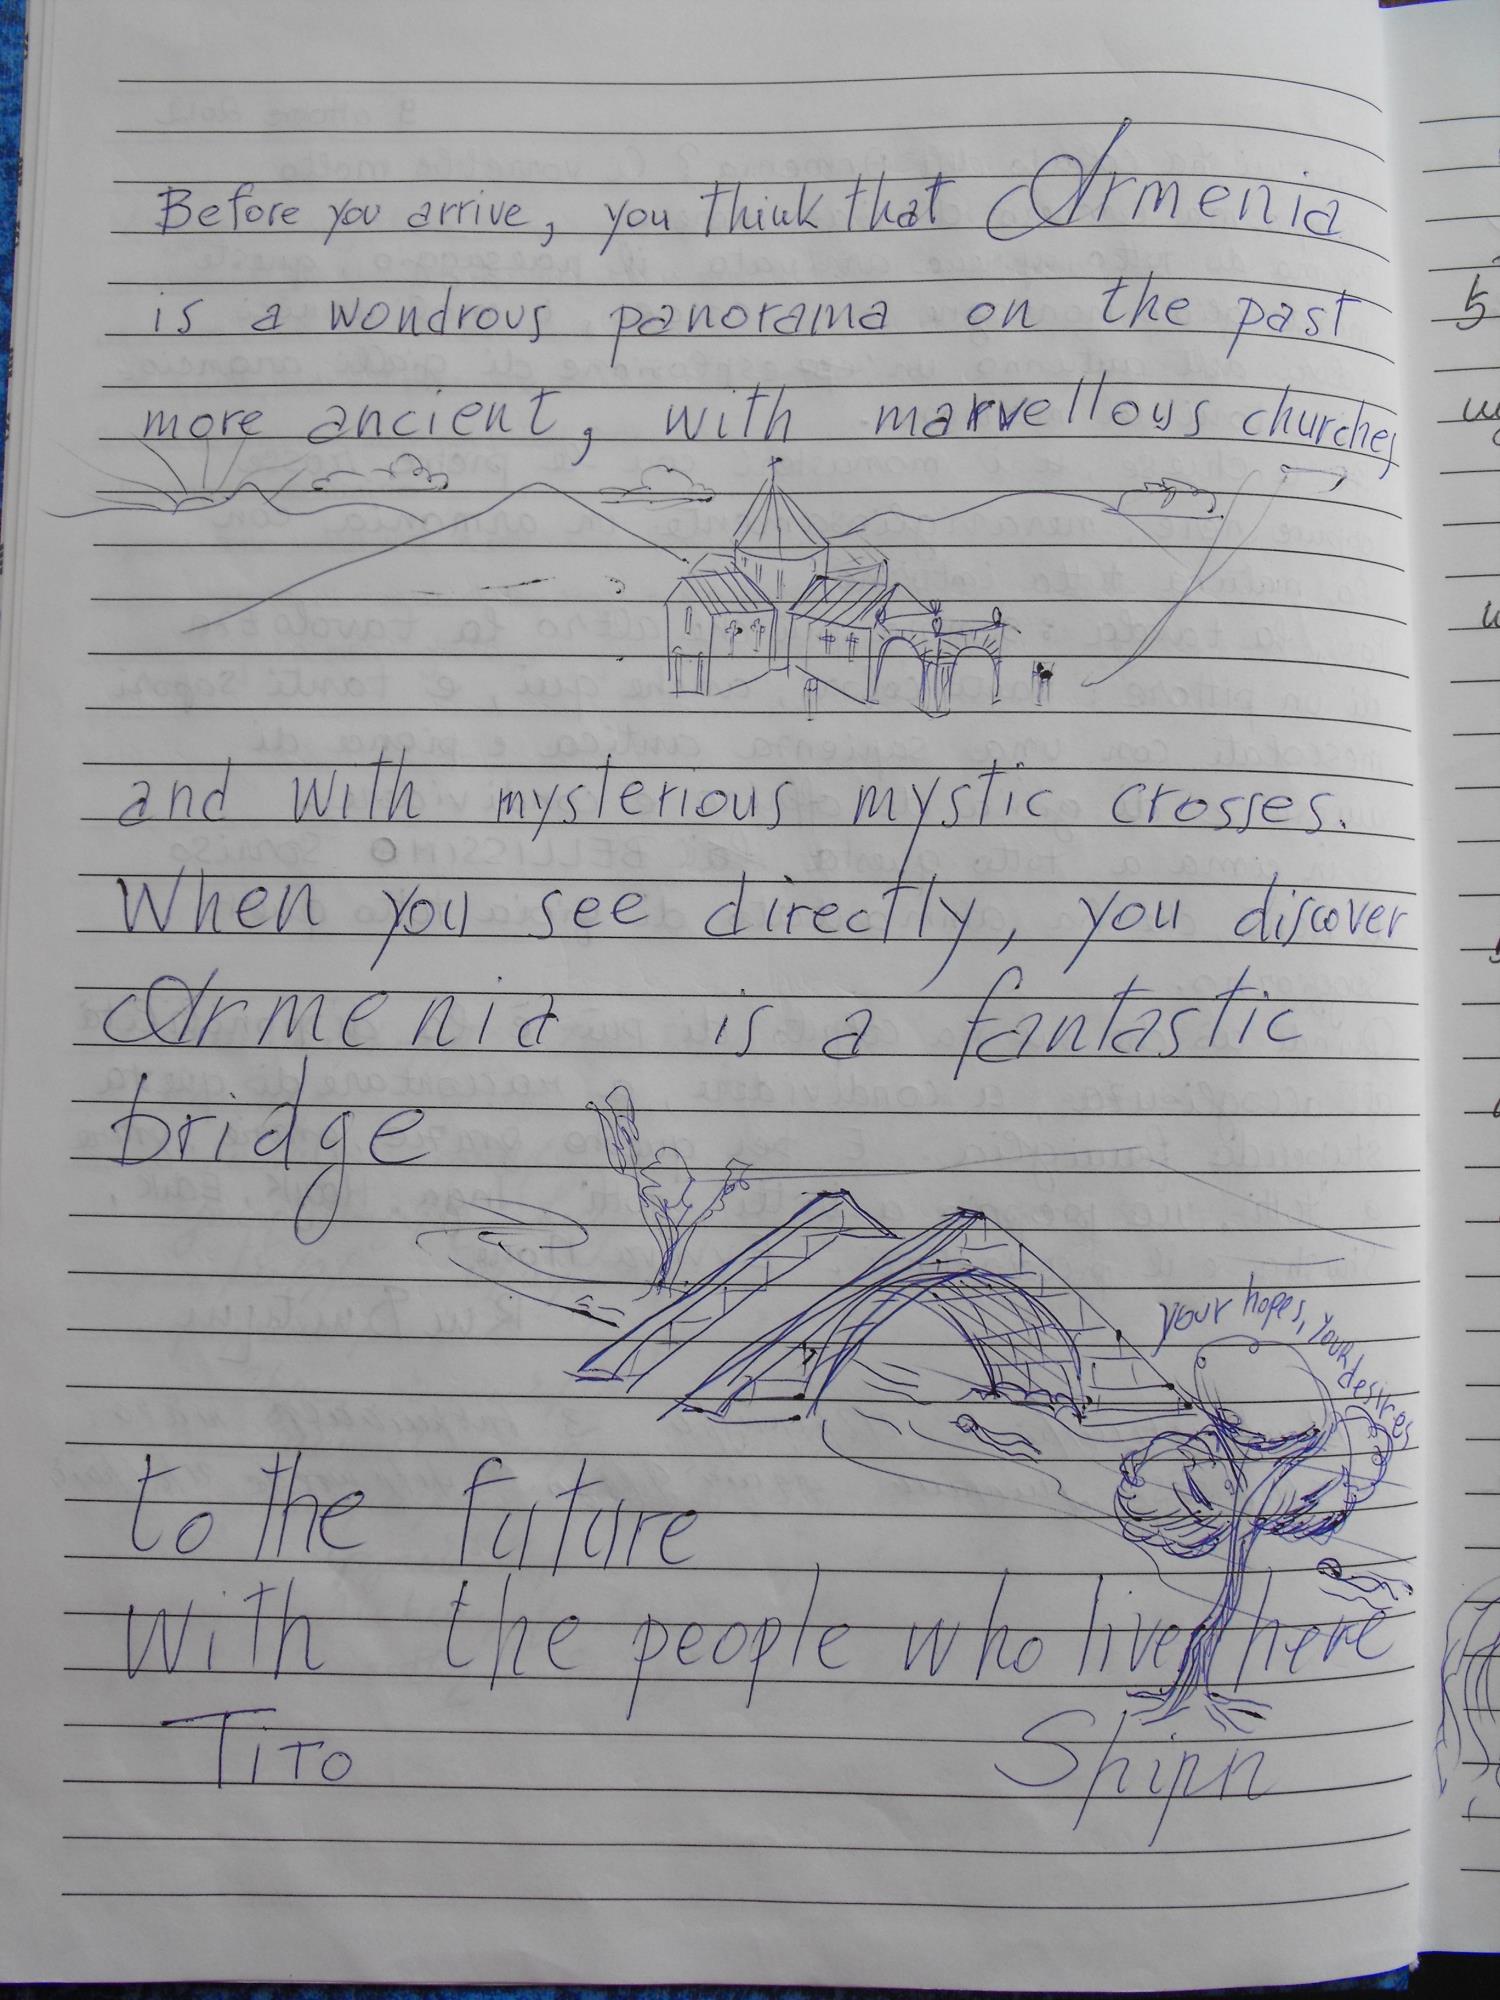 Before you arrive, you think that Armenia
is a wondrous panorama on the past
more ancient, with marvellous churches
and with mysterious mystic crosses.
When you see directly, you discover
Armenia is a fantastic
bridge
your hopes, your desires
to the future
with the people who lives here
Tito